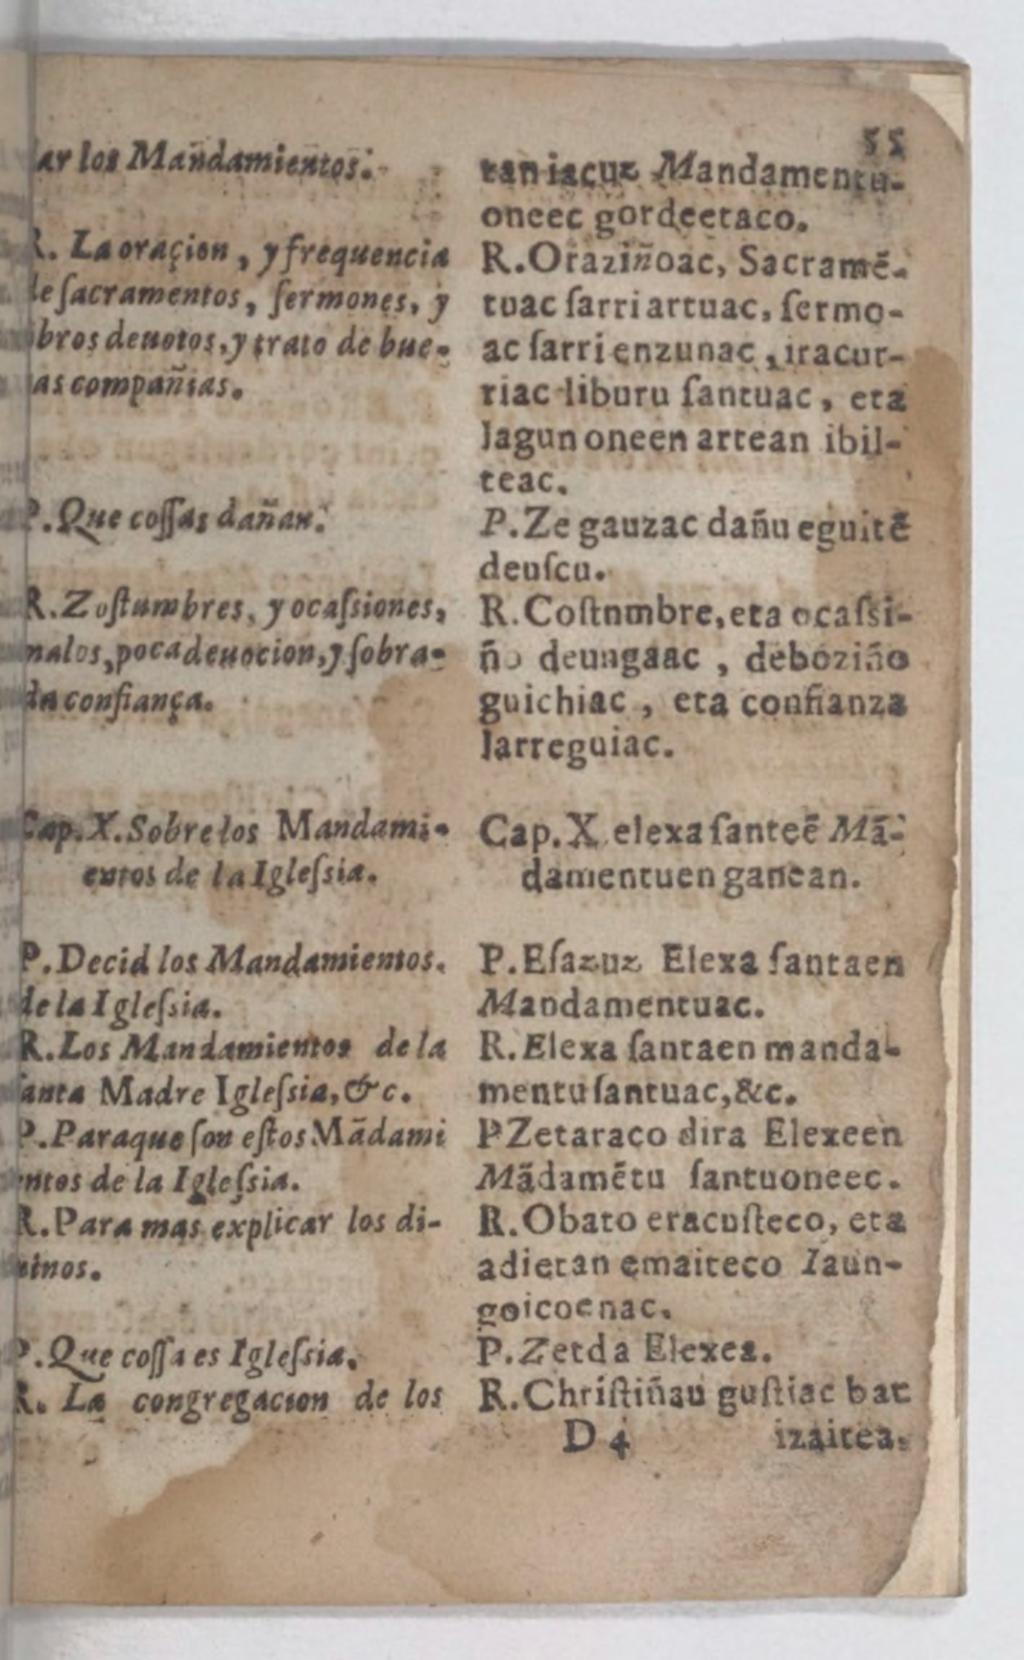 55
ar los Mandamientos.
R. La oraçion, y frequencia
de ſacramentos, ſermones, y
bros deuotos, y trato de bue-
as compañias.
P. Que coſſas dañan.
R. Zoſtumbres, y ocaſsiones,
malos, poca deuocion, y ſobra-
da confiança.
Cap. X. Sobre los Mandami-
entos de la Igleſsia.
P. Decid los Mandamientos.
de la Igleſsia.
R. Los Mandamientos de la
ſanta Madre Igleſsia, &c.
P. Paraque ſon eſtos Mãdami
entos de la Igleſsia.
R. Para mas explicar los di-
uinos.
P. Que coſſa es Igleſsia.
R. La congregacion de los
tan iacuz Mandamentu-
oneec gordeetaco.
R. Oraziñoac, Sacramẽ-
tuac ſarri artuac, ſermo-
ac ſarri enzunac, iracur-
riac liburu ſantuac, eta
lagun oneen artean ibil-
teac.
P. Ze gauzac dañu eguitẽ
deuſcu.
R. Coſtnmbre, eta ocaſsi-
ño deungaac, deboziño
guichiac, eta confianza
larreguiac.
Cap. X elexa ſanteẽ Mã-
damentuen ganean.
P. Eſazuz Elexa ſantaen
Mandamentuac.
R. Elexa ſantaen manda-
mentu ſantuac, &c.
P Zetaraco dira Elexeen
Mãdamẽtu ſantuoneec.
R. Obato eracuſteco, eta
adietan emaiteco Iaun-
goicoenac.
P. Zetda Elexea.
R. Chriſtiñau guſtiac bat
D 4 izaitea.